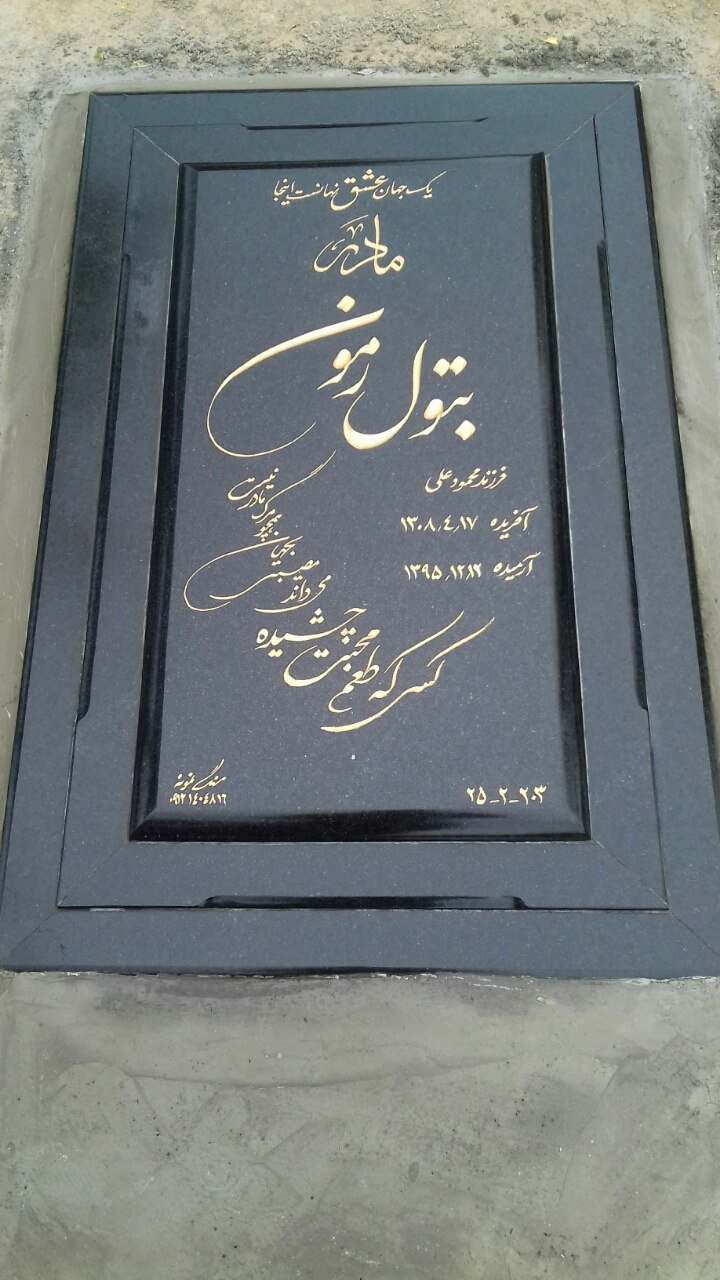 یک جهان عشق نهانست اینجا
مادر
بتول رمون
فرزند محمود علی
آفریده ۱۳۰۸٫۴٫۱۷
آرمیده ۱۳۹۵٫۱۲٫۱۲
کسی که طعم محبت چشیده می داند
مصیبتی بجهان همچو مرگ مادر نیست
۲۵-۲-۲۰۳
سنگ نمونه
۰۹۱۲۱۴۰۴۸۱۶